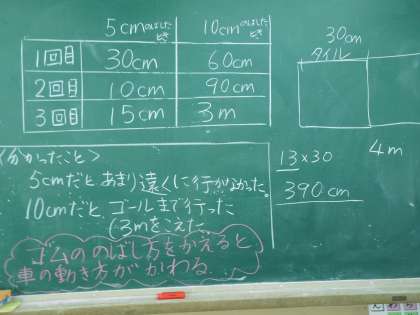 5cmのばしたとき 10cmのばしたとき
1回目 30cm 60cm
2回目 10cm 90cm
3回目 15cm 3m
30cm
タイル
13×30
390cm
4m
<分かったこと>
5cmだとあまり遠くに行がなかった。
10cmだと、ゴールまで行った
(3mをこえた
ゴムののばし方をかえると
車の動き方がかわる